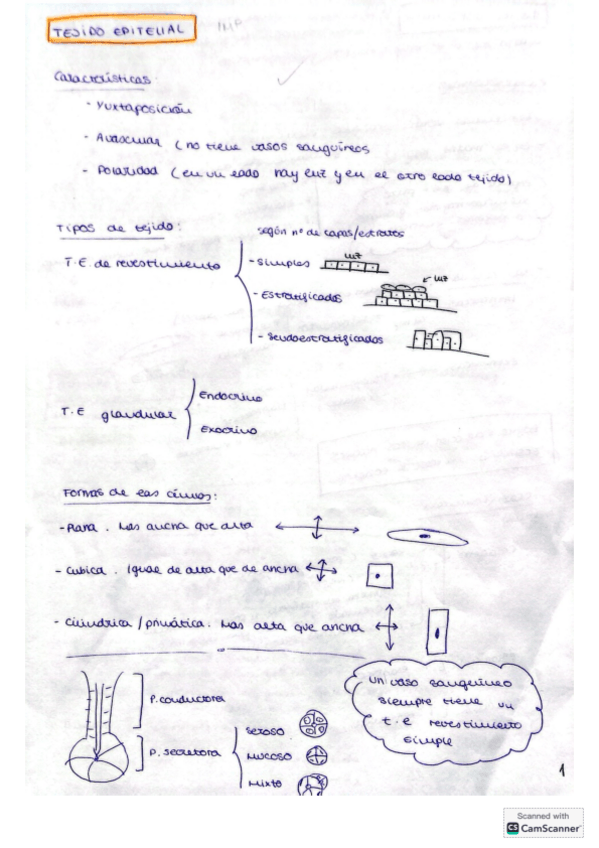 TEJIDO EPITELIAL
Características:
- Yuxtaposición
- Avascular (no tiene vasos sanguíneos
- Polaridad (en un lado hay luz y en el otro lado tejido)
Tipos de tejido:
según nº de capas/estratos
T.E. de revestimiento
- Simples
luz
- Estratificados
luz
- Seudoestratificados
T.E glandular
Endocrino
Exocrino
Formas de las células:
- Plana. Más ancha que alta
- Cúbica. Igual de alta que de ancha
- Cilíndrica / prismática. Más alta que ancha
P. conductora
P. secretora
Seroso
Mucoso
Mixto
Un vaso sanguíneo
siempre tiene un
t.e revestimiento
simple
1
Scanned with
CS CamScanner